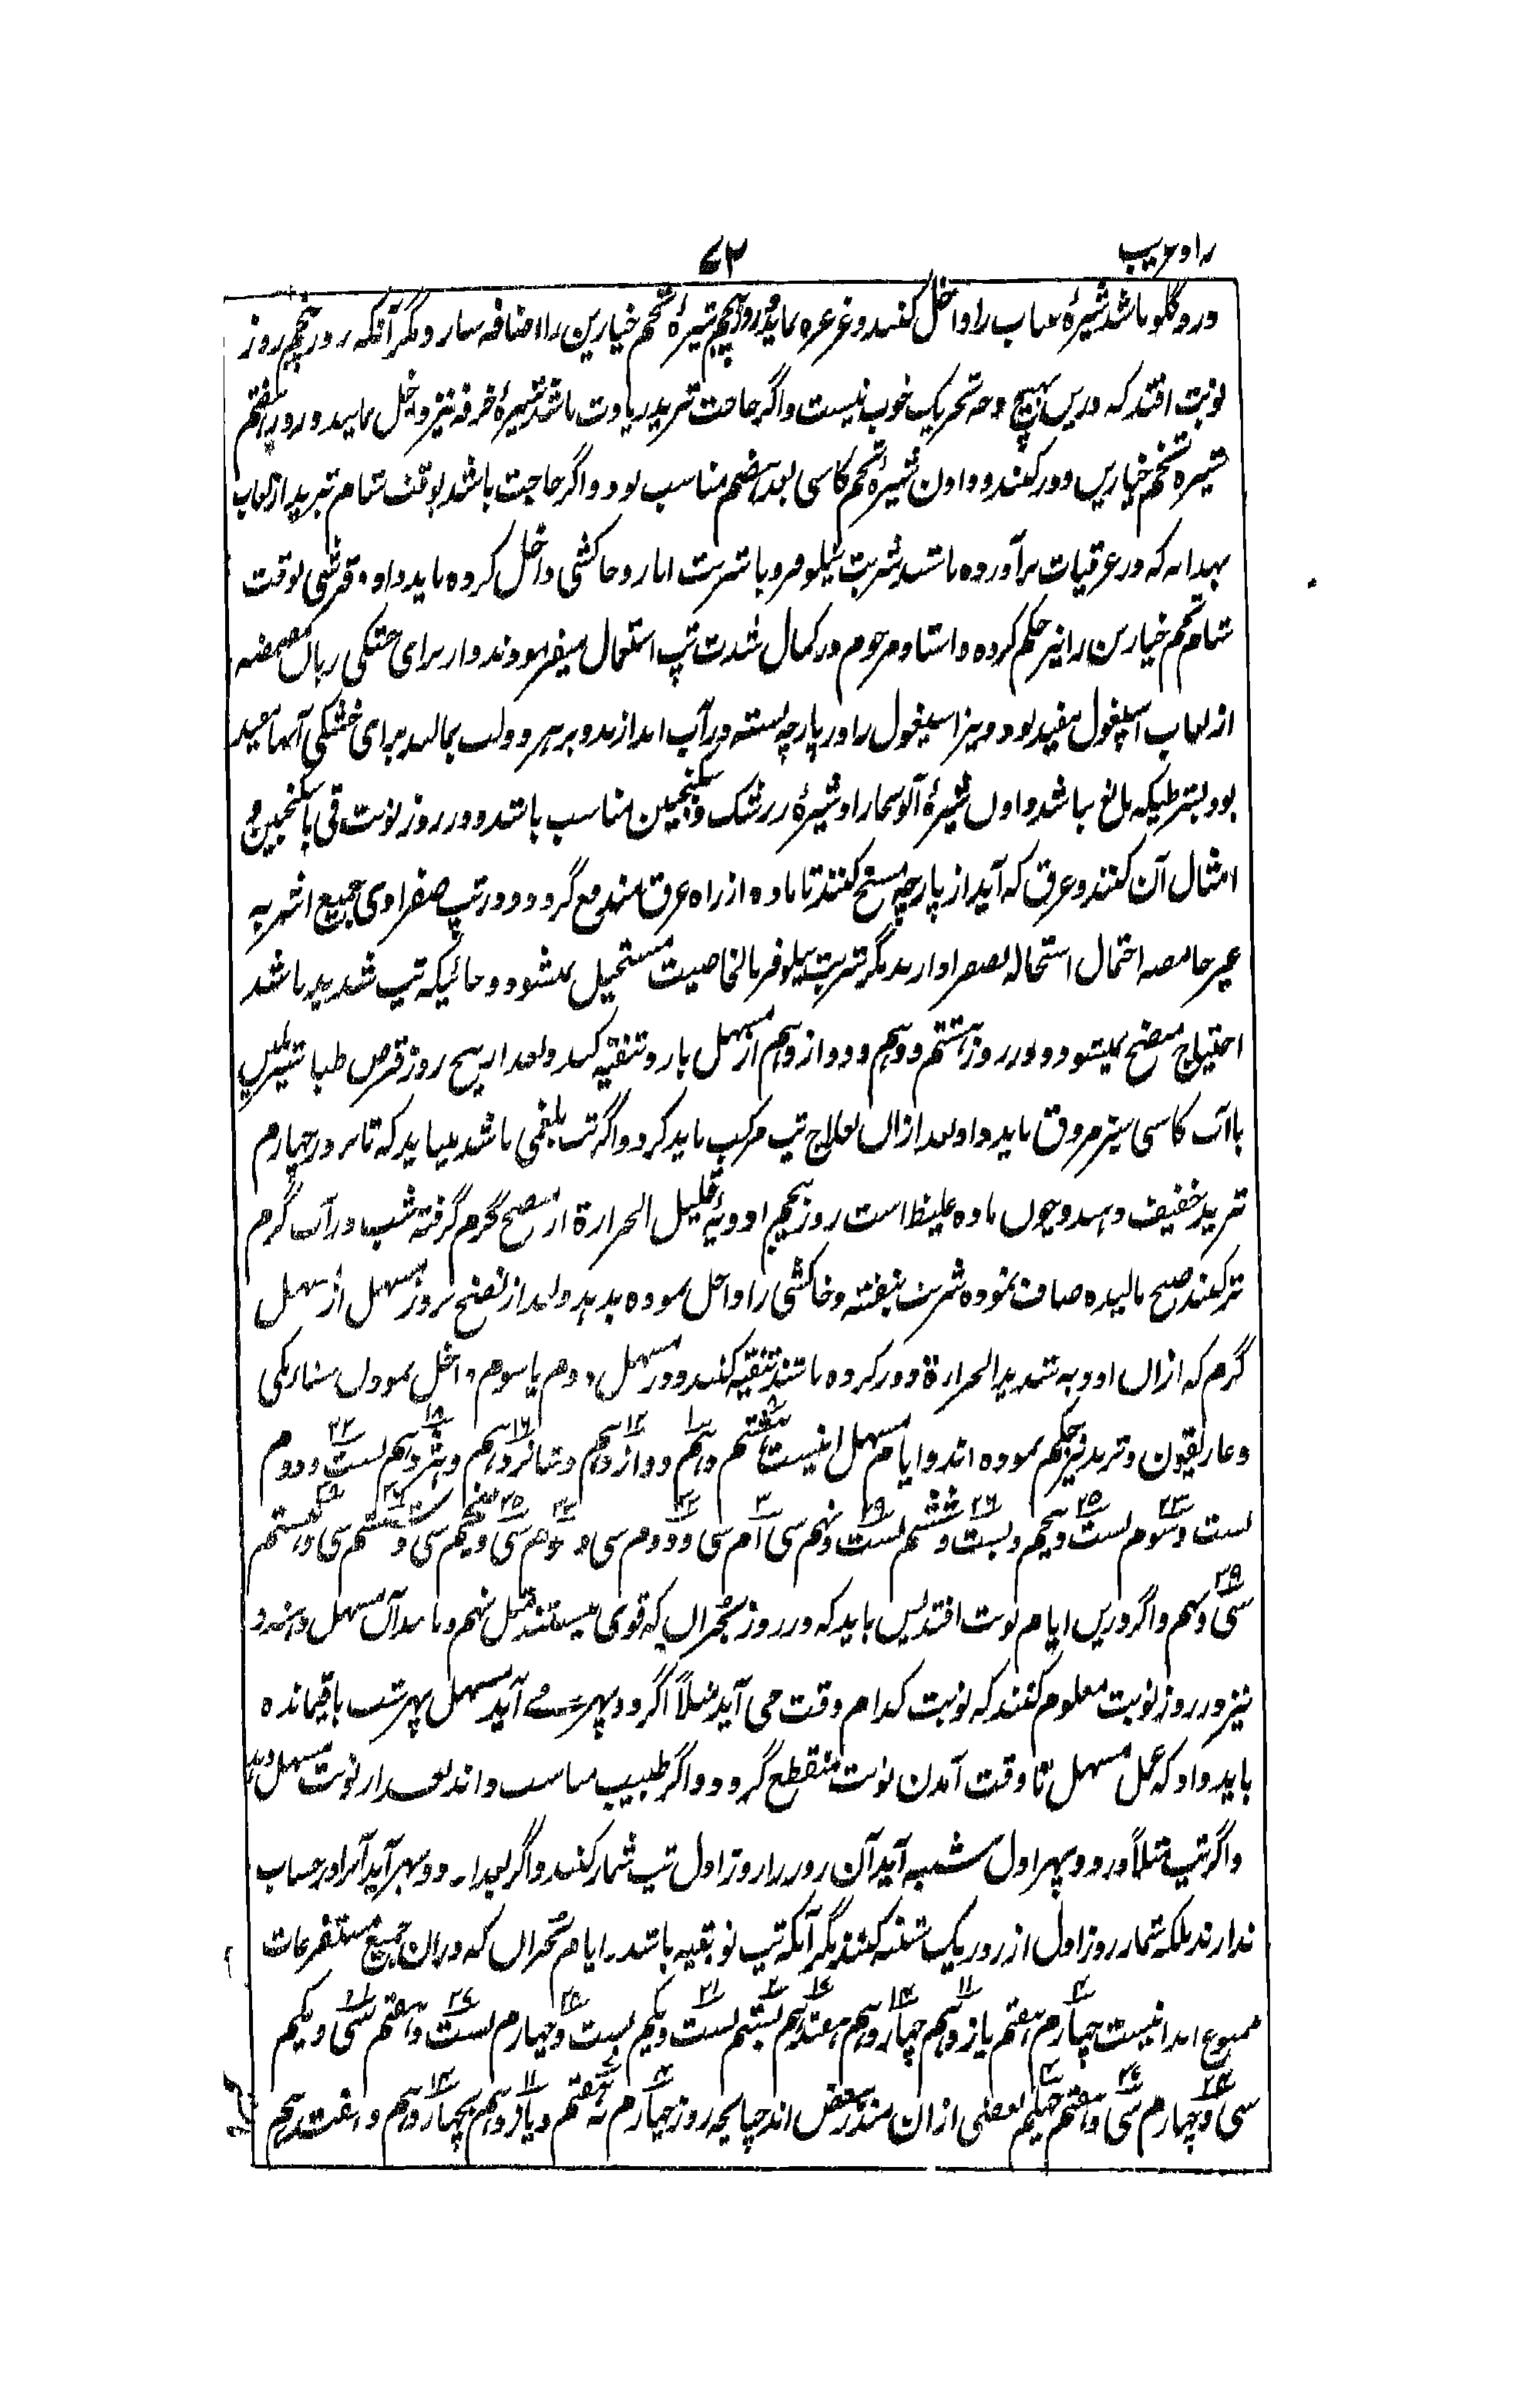 ۷۲
درد گلو باشد شیرهٔ عناب را داخل کنند و غرغره نماید و روز پنجم شیرهٔ تخم خیارین را اضافه سازد مگر آنکه روز پنجم روز
نوبت افتد که درین هیچ وجه تحریک خوب نیست و اگر حاجت تبرید زیادت باشد شیرهٔ خرفه نیز داخل نمایند و روز هفتم
شیره تخم خیارین دور کنند و دادن شیرهٔ تخم کاسنی بعد هضم مناسب بود و اگر حاجت باشد بوقت شام تبرید از لعاب
بهدانه که در عرقیات برآورده باشند شربت نیلوفر و یا شربت انار و خاکشی داخل کرده باید داد و قرشی بوقت
شام تخم خیارین را نیز حکم کرده و استاد مرحوم در کمال شدت تپ استعمال میفرمودند و از برای خشکی زبان مضمضه
از لعاب اسپغول مفید بود و نیز اسپغول را در پارچه بسته در آب اندازند و بر هر دو لب بمالند برای خشکی آنها مفید
بود بشرطیکه بالغ باشد و اول شیرهٔ آلو بخارا و شیرهٔ زرشک و سکنجبین مناسب باشد و در روز نوبت قی با سکنجبین و
امثال آن کنند و عرق که آید از پارچه مسح کنند تا ماده از راه عرق مندفع گردد و در تپ صفراوی جمیع اشربه
غیر حامضه احتمال استحاله بصفرا دارند مگر شربت نیلوفر بالخاصیت مستحیل نمیشود و حالیکه تپ شدید باشد
احتیاج منضج نمیشود و در روز هشتم و دهم و دوازدهم از مسهل بارد تنقیه کنند و بعد از پنج روز قرص طباشیر ملین
با آب کاسنی سبز مروق باید داد و بعد از ان بعلاج تپ مرکب باید کرد و اگر تپ بلغمی باشد میباید که تا روز چهارم
تبرید خفیف دهند و چون ماده غلیظ است روز پنجم ادویهٔ قلیل الحرارة از منضج گرم گرفته شب در آب گرم
تر کنند صبح مالیده صاف نموده شربت بنفشه و خاکشی را داخل نموده بدهند و بعد از نضج بروز مسهل از مسهل
گرم که ازان ادویه شدید الحرارة دور کرده باشند تنقیه کنند و در مسهل دوم یا سوم داخل نمودن سنار مکی
و غاریقون و تربد نیز حکم نموده اند و ایام مسهل اینست هشتم دهم دوازدهم و شانزدهم و هژدهم بست و دوم
بست و سوم بست و پنجم و بست و ششم بست و نهم سی ام سی و دوم سی و سوم سی و پنجم سی و ششم سی و هشتم
سی و نهم و اگر درین ایام نوبت افتد پس باید که در روز بحران که قوی نیستند مثل نهم و مانند آن مسهل دهند و
نیز در روز نوبت معلوم کنند که نوبت کدام وقت می آید مثلاً اگر دوپهر می آید مسهل پهر شب باقیمانده
باید داد که عمل مسهل تا وقت آمدن نوبت منقطع گردد و اگر طبیب مناسب داند بعد از نوبت مسهل دهد
و اگر تپ مثلاً در دو پهر اول شنبه آید آن روز را روز اول تپ شمار کنند و اگر بعد از دو پهر آید آنرا در حساب
ندارند بلکه شمار روز اول از روز یک شنبه کنند مگر آنکه تپ نوبتیه باشد۔ ایام بحران که دران جمیع مستفرغات
ممنوع اند اینست چهارم هفتم یازدهم چهاردهم هفتدهم بستم بست و یکم بست و چهارم بست و هفتم سی و یکم
سی و چهارم سی و هفتم چهلم بعضی ازان منذر بعض اند چنانچه روز چهارم به هفتم و یازدهم بچهاردهم و هفتدهم